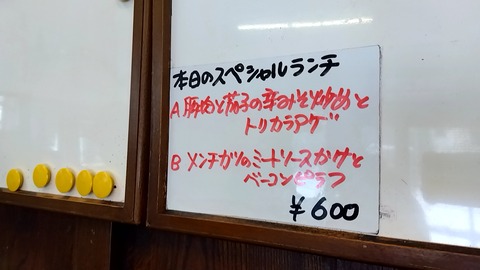 本日のスペシャルランチ
A 豚肉と茄子の辛みそ炒めと
トリカラアゲ
B メンチカツのミートソースかけと
ベーコンピラフ
¥600